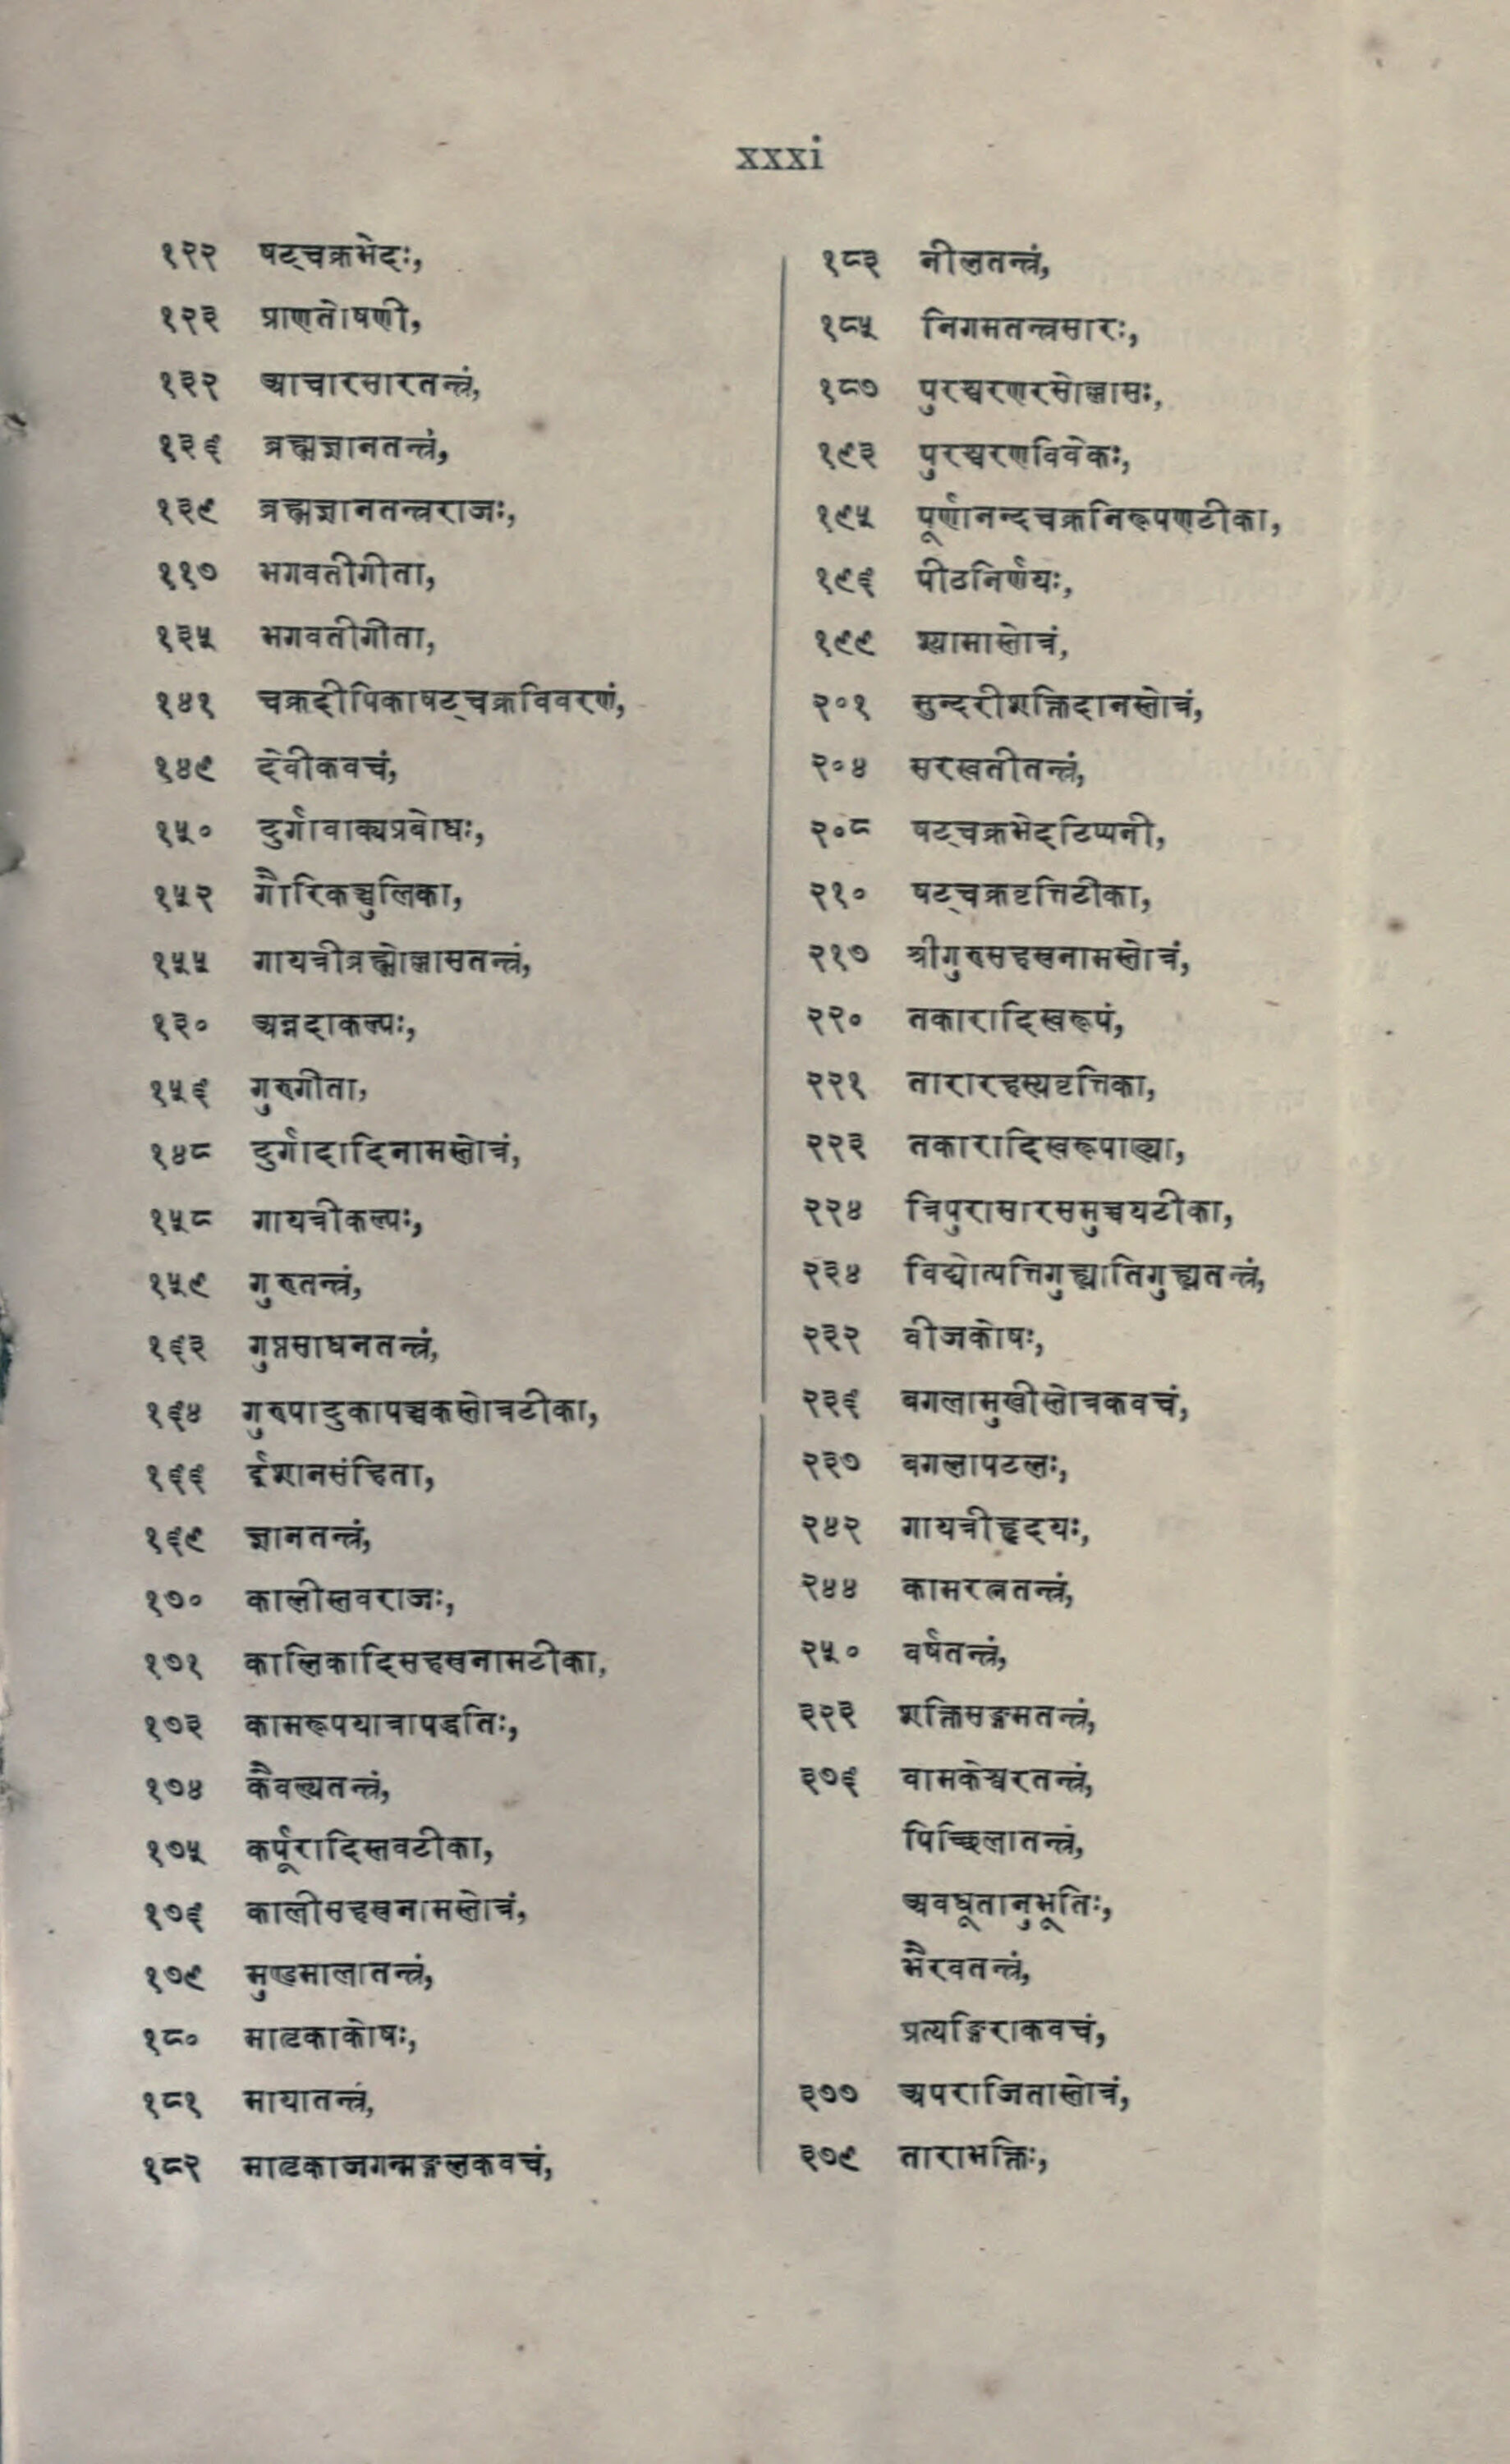 xxxi
१२२ षट्चक्रभेदः,
१२३ प्राणतोषणी,
१३२ आचारसारतन्त्रं,
१३६ ब्रह्मज्ञानतन्त्रं,
१३९ ब्रह्मज्ञानतन्त्रराजः,
११७ भगवतीगीता,
१३५ भगवतीगीता,
१४१ चक्रदीपिकाषट्चक्रविवरणं,
१४९ देवीकवचं,
१५० दुर्गावाक्यप्रबोधः,
१५२ गौरिकञ्चुलिका,
१५५ गायत्रीब्रह्मोल्लासतन्त्रं,
१३० अन्नदाकल्पः,
१५६ गुरुगीता,
१४८ दुर्गादादिनामस्तोत्रं,
१५८ गायत्रीकल्पः,
१५९ गुरुतन्त्रं,
१६२ गुप्तसाधनतन्त्रं,
१६४ गुरुपादुकापञ्चकस्तोत्रटीका,
१६६ ईशानसंहिता,
१६९ ज्ञानतन्त्रं,
१७० कालीस्तवराजः,
१७१ कालिकादिसहस्रनामटीका,
१७२ कामरूपयात्रापद्धतिः,
१७४ कैवल्यतन्त्रं,
१७५ कर्पूरादिस्तवटीका,
१७६ कालीसहस्रनामस्तोत्रं,
१७९ मुण्डमालातन्त्रं,
१८० मातृकाकोषः,
१८१ मायातन्त्रं,
१८२ मातृकाजगन्मङ्गलकवचं,
१८३ नीलतन्त्रं,
१८५ निगमतन्त्रसारः,
१८७ पुरश्चरणरसोल्लासः,
१९३ पुरश्चरणविवेकः,
१९५ पूर्णानन्दचक्रनिरूपणटीका,
१९६ पीठनिर्णयः,
१९९ श्यामास्तोत्रं,
२०१ सुन्दरीशक्तिदानस्तोत्रं,
२०४ सरस्वतीतन्त्रं,
२०८ षट्चक्रभेदटिप्पनी,
२१० षट्चक्रवृत्तिटीका,
२१७ श्रीगुरुसहस्रनामस्तोत्रं,
२२० तकारादिस्वरूपं,
२२१ तारारहस्यवृत्तिका,
२२३ तकारादिस्वरूपाख्या,
२२४ त्रिपुरासारसमुच्चयटीका,
२३४ विद्योत्पत्तिगुह्यातिगुह्यतन्त्रं,
२३२ वीजकोषः,
२३६ बगलामुखीस्तोत्रकवचं,
२३७ बगलापटलः,
२४२ गायत्रीहृदयः,
२४४ कामरत्नतन्त्रं,
२५० वर्षतन्त्रं,
३२३ शक्तिसङ्गमतन्त्रं,
३७६ वामकेश्वरतन्त्रं,
पिच्छिलातन्त्रं,
अवधूतानुभूतिः,
भैरवतन्त्रं,
प्रत्यङ्गिराकवचं,
३७७ अपराजितास्तोत्रं,
३७९ ताराभक्तिः,